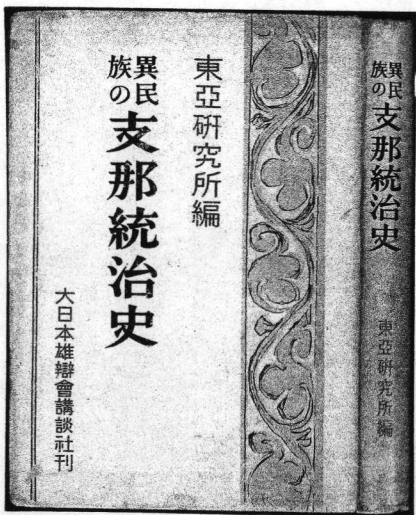 東亞研究所編
異民
族の
支那統治史
大日本雄辯會講談社刊
異民
族の
支那統治史
東亞研究所編